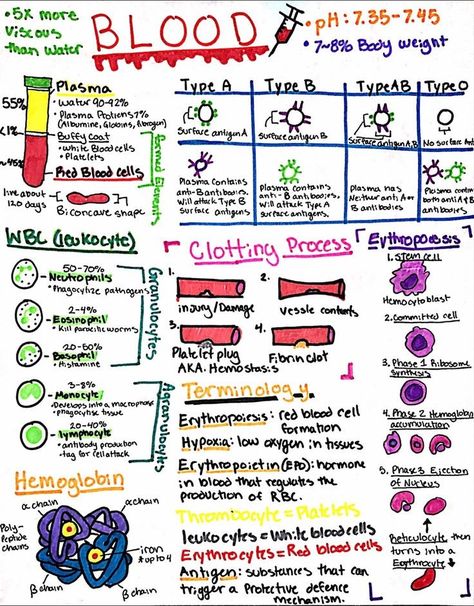 • 5x more
Viscous
than Water
BLOOD
• pH: 7.35-7.45
• 7-8% Body weight
55%
<1%
~45%
Plasma
• Water 90-92%
• Plasma Protiens 7%
(Albumine, Globlins, fibrogen)
Buffy coat
• White Blood cells
• Platelets
Red Blood cells
Formed Elements
live about
120 days
Biconcave shape
Type A
Type B
Type AB
Type O
Surface antigen A
Surface antigen B
Surface antigen A,B
No surface Ant
Plasma contains
anti-B antibodies.
Will attack Type B
Surface antigens
Plasma contains
anti-B antibodies,
will attack Type A
surface antigens.
Plasma has
Neither anti A or
B antibodies
Plasma contain
both anti A and
B antibodies
WBC (leukocyte)
50-70%
Neutrophils
• Phagocytize pathogens
2-4%
Eosinophil
• Kill parasitic worms
20-60%
Basophil
• Histamine
Granulocytes
3-8%
Monocyte
• Develops into a macrophage
phagocytise tissue
20-40%
lymphocyte
• antibody production
• tag for cell attack
Agranulocytes
Clotting Process
1.
injury/Damage
2.
Vessle contents
3.
Platelet plug
AKA. Hemostasis
4.
Fibrin clot
Terminology
Erythropoisis: red blood cell
formation
Hypoxia: low oxygen in tissues
Erythropoietin (EPO): hormone
in blood that regulates the
production of RBC.
Thrombocyte = Platelets
leukocytes = White blood cells
Erythrocytes = Red blood cells
Antigen: substances that can
trigger a Protective defence
mechanism.
Erythropoesis
1. Stem cell
Hemocytoblast
2. Committed cell
3. Phase 1 Ribosome
synthesis
4. Phase 2 Hemoglobin
accumulation
5. Phase 3 Ejection
of Nucleus
Reticulocyte then
turns into a
Erythrocyte
Hemoglobin
α chain
α chain
Poly-
Peptide
chains
iron
*up to 4
β chain
β chain